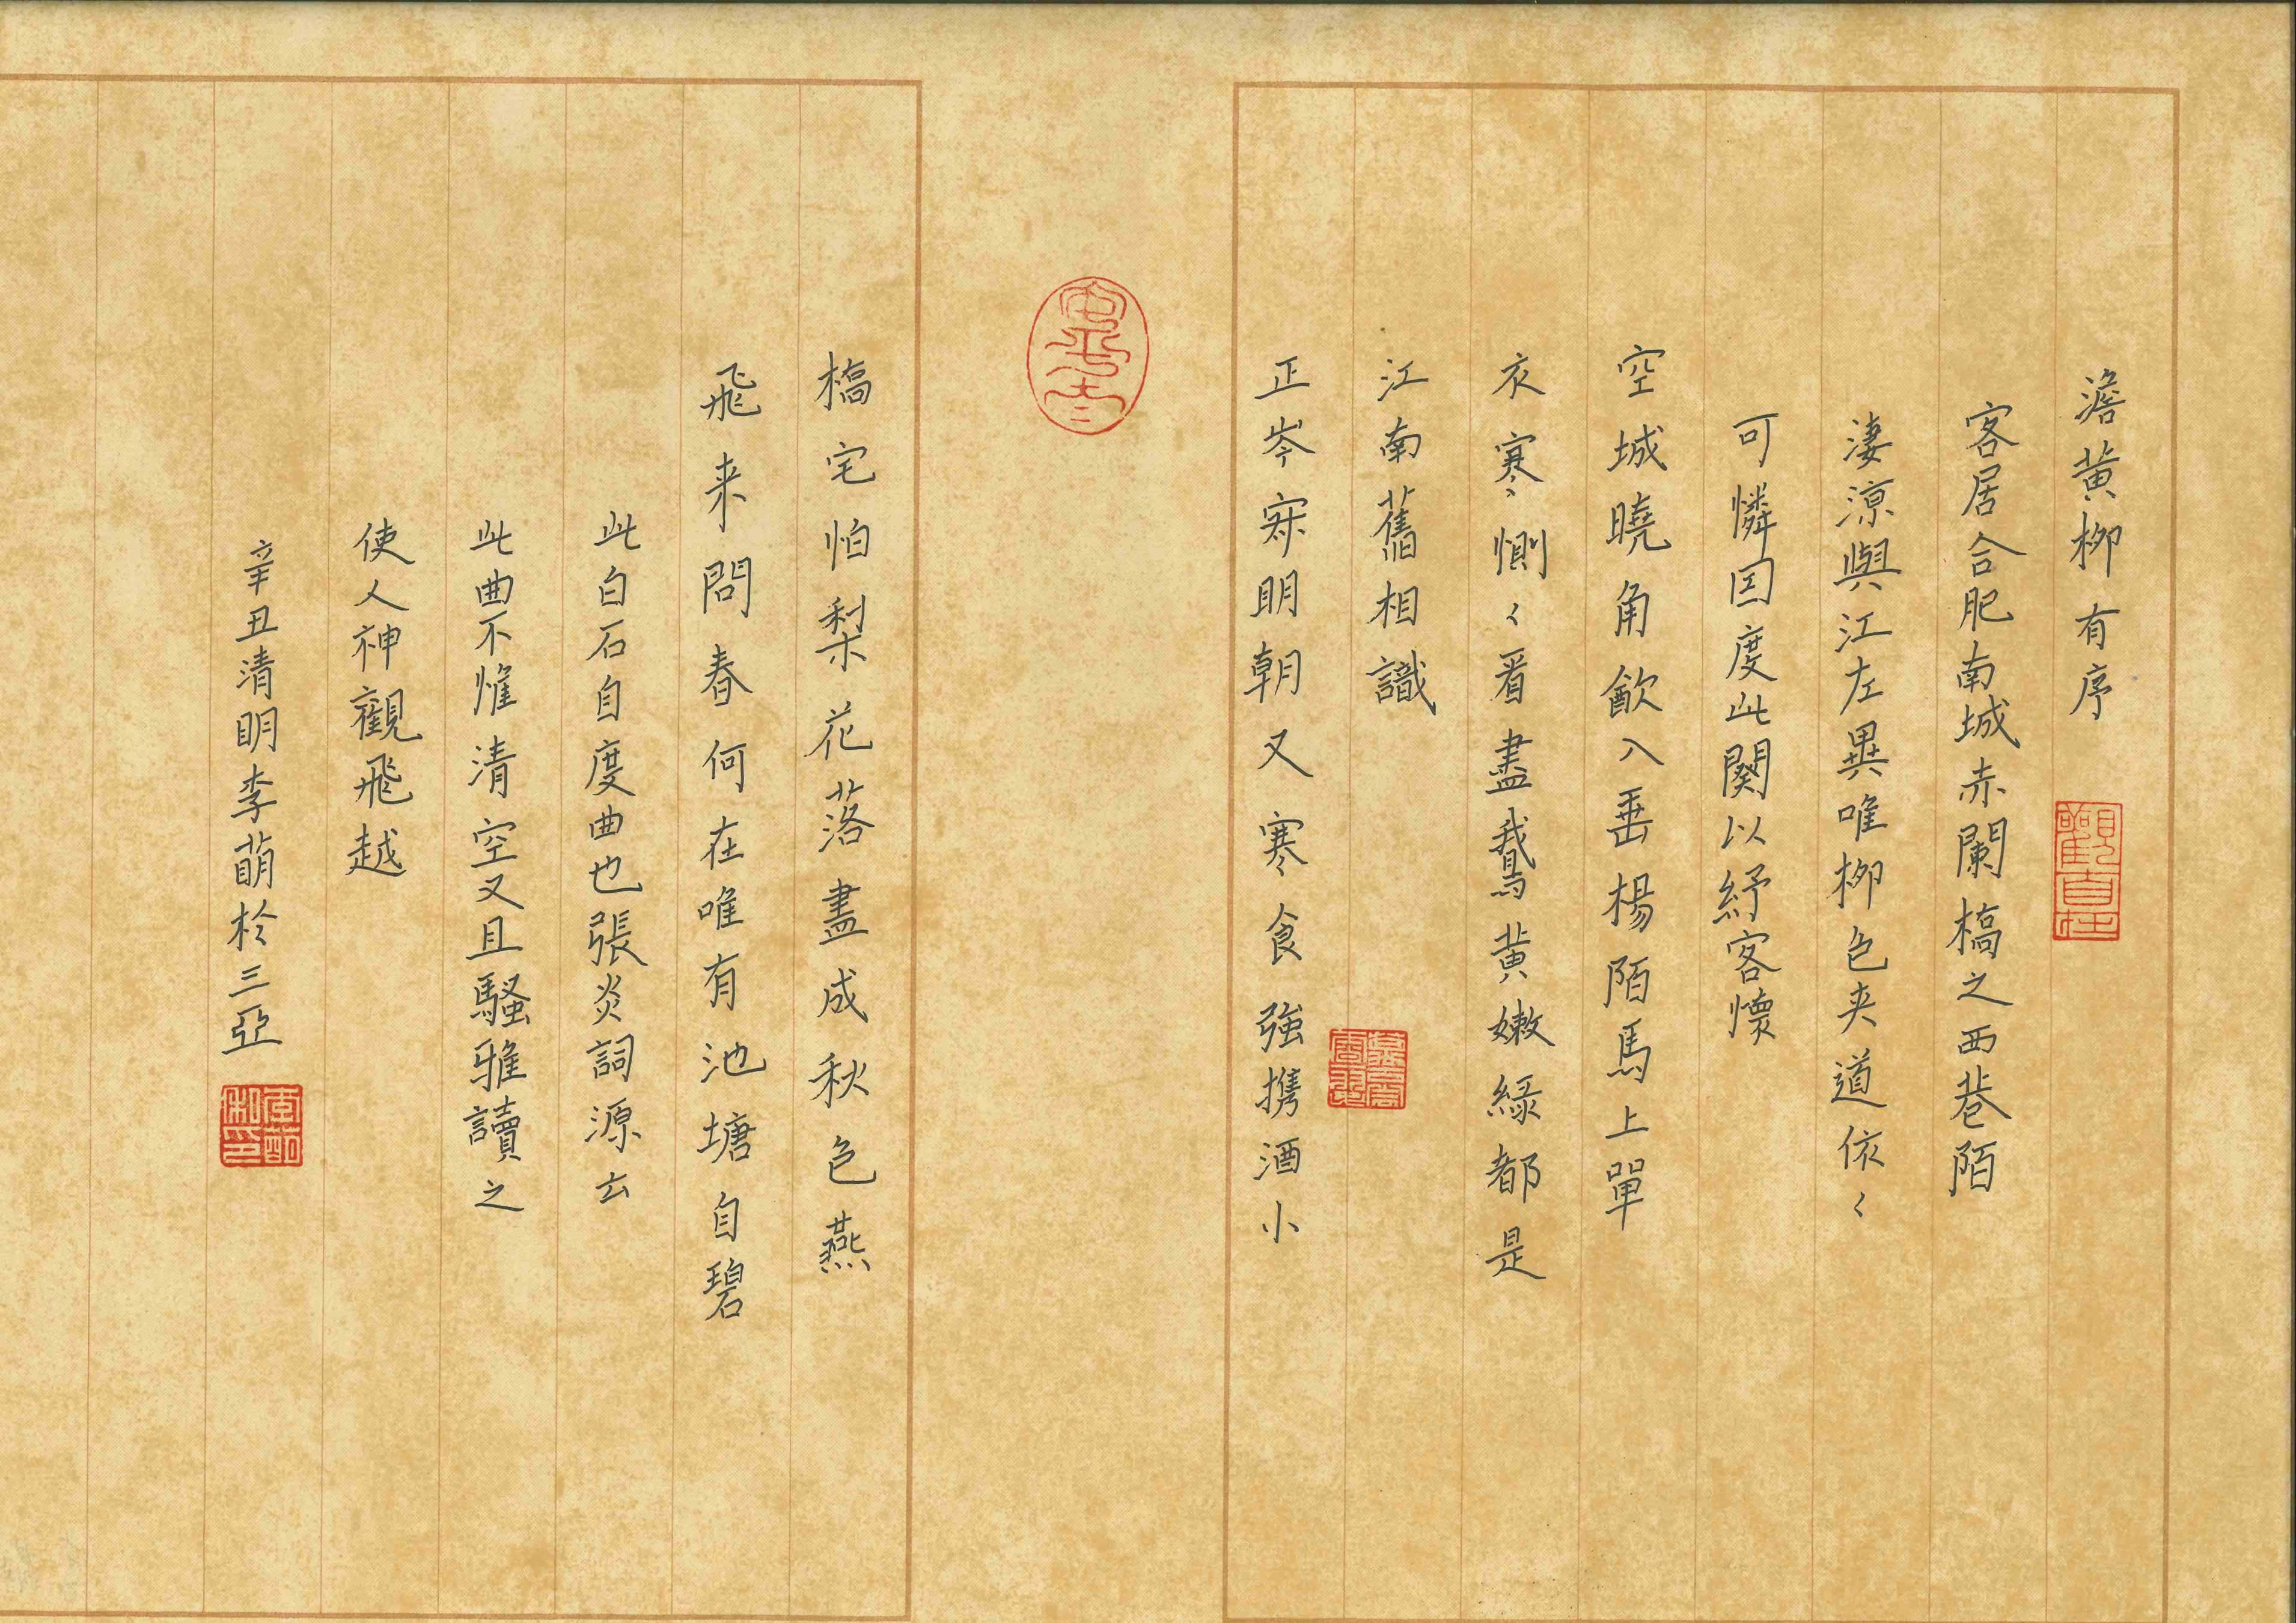 澹黄柳 有序
客居合肥南城赤闌橋之西巷陌
淒涼與江左異唯柳色夹道依〻
可憐因度此闋以紓客懷
空城曉角歈入垂楊陌馬上單
衣寒惻〻看盡鵞黄嫩緑都是
江南舊相識
正岑寂明朝又寒食強携酒小
橋宅怕梨花落盡成秋色燕
飛来問春何在唯有池塘自碧
此白石自度曲也張炎詞源云
此曲不惟清空又且騷雅讀之
使人神觀飛越
辛丑清明李萌於三亞